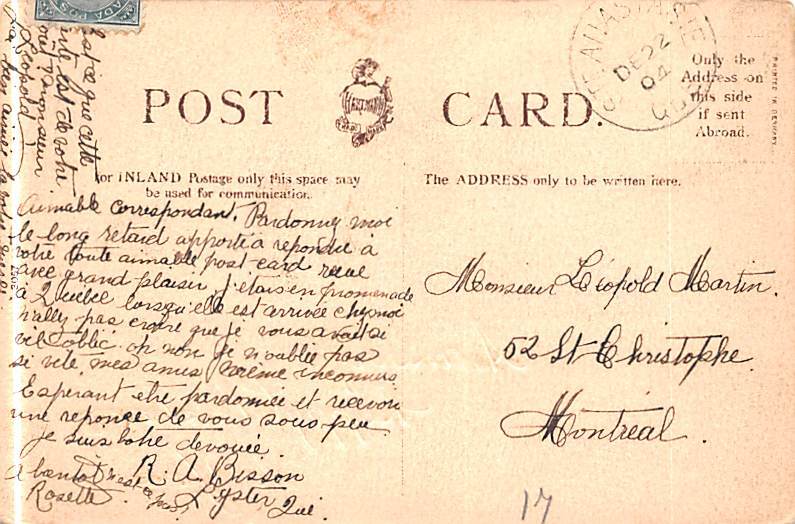 CANADA POSTA
POST CARD.
STE ANASTASIE
DE 22
04
QUE
Only the
Address on
this side
if sent
Abroad.
PRINTED IN GERMANY
HARTMANN
TRADE MARK
For INLAND Postage only this space may
be used for communication.
The ADDRESS only to be written here.
Aimable correspondant. Pardonnez moi
le long retard apporté à repondre à
votre toute aimable post-card recue
avec grand plaisir, j'étais en promenade
à Quebec lorsqu'elle est arrivée chez moi
n'allez pas croire que je vous avait si
vite oblié. oh non je n'oublie pas
si vite, mes amis même inconnus
Esperant être pardonnée et recevoir
une reponse de vous sous peu
Je suis votre devouée
R. A. Bisson
Lyster Qué.
A bientôt n'est-ce pas
Rosette.
Est ce que cette
est de votre
Monsieur
Léopold
Monsieur Léopold Martin.
52 St-Christophe.
Montréal.
17